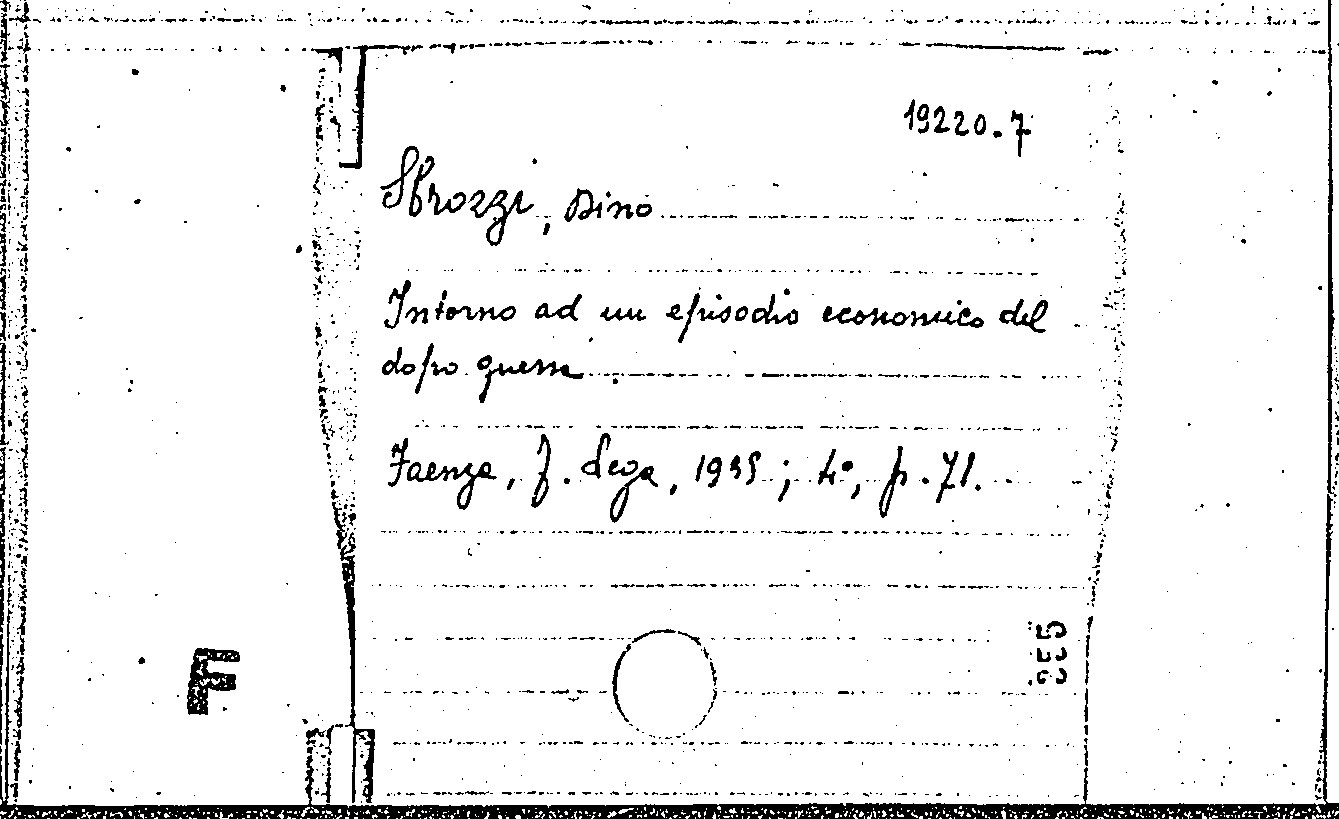 19220.7
Sbrozzi, Dino
Intorno ad un episodio economico del
dopo guerra
Faenza, F. Lega, 1935; 4°, p. 71.
F